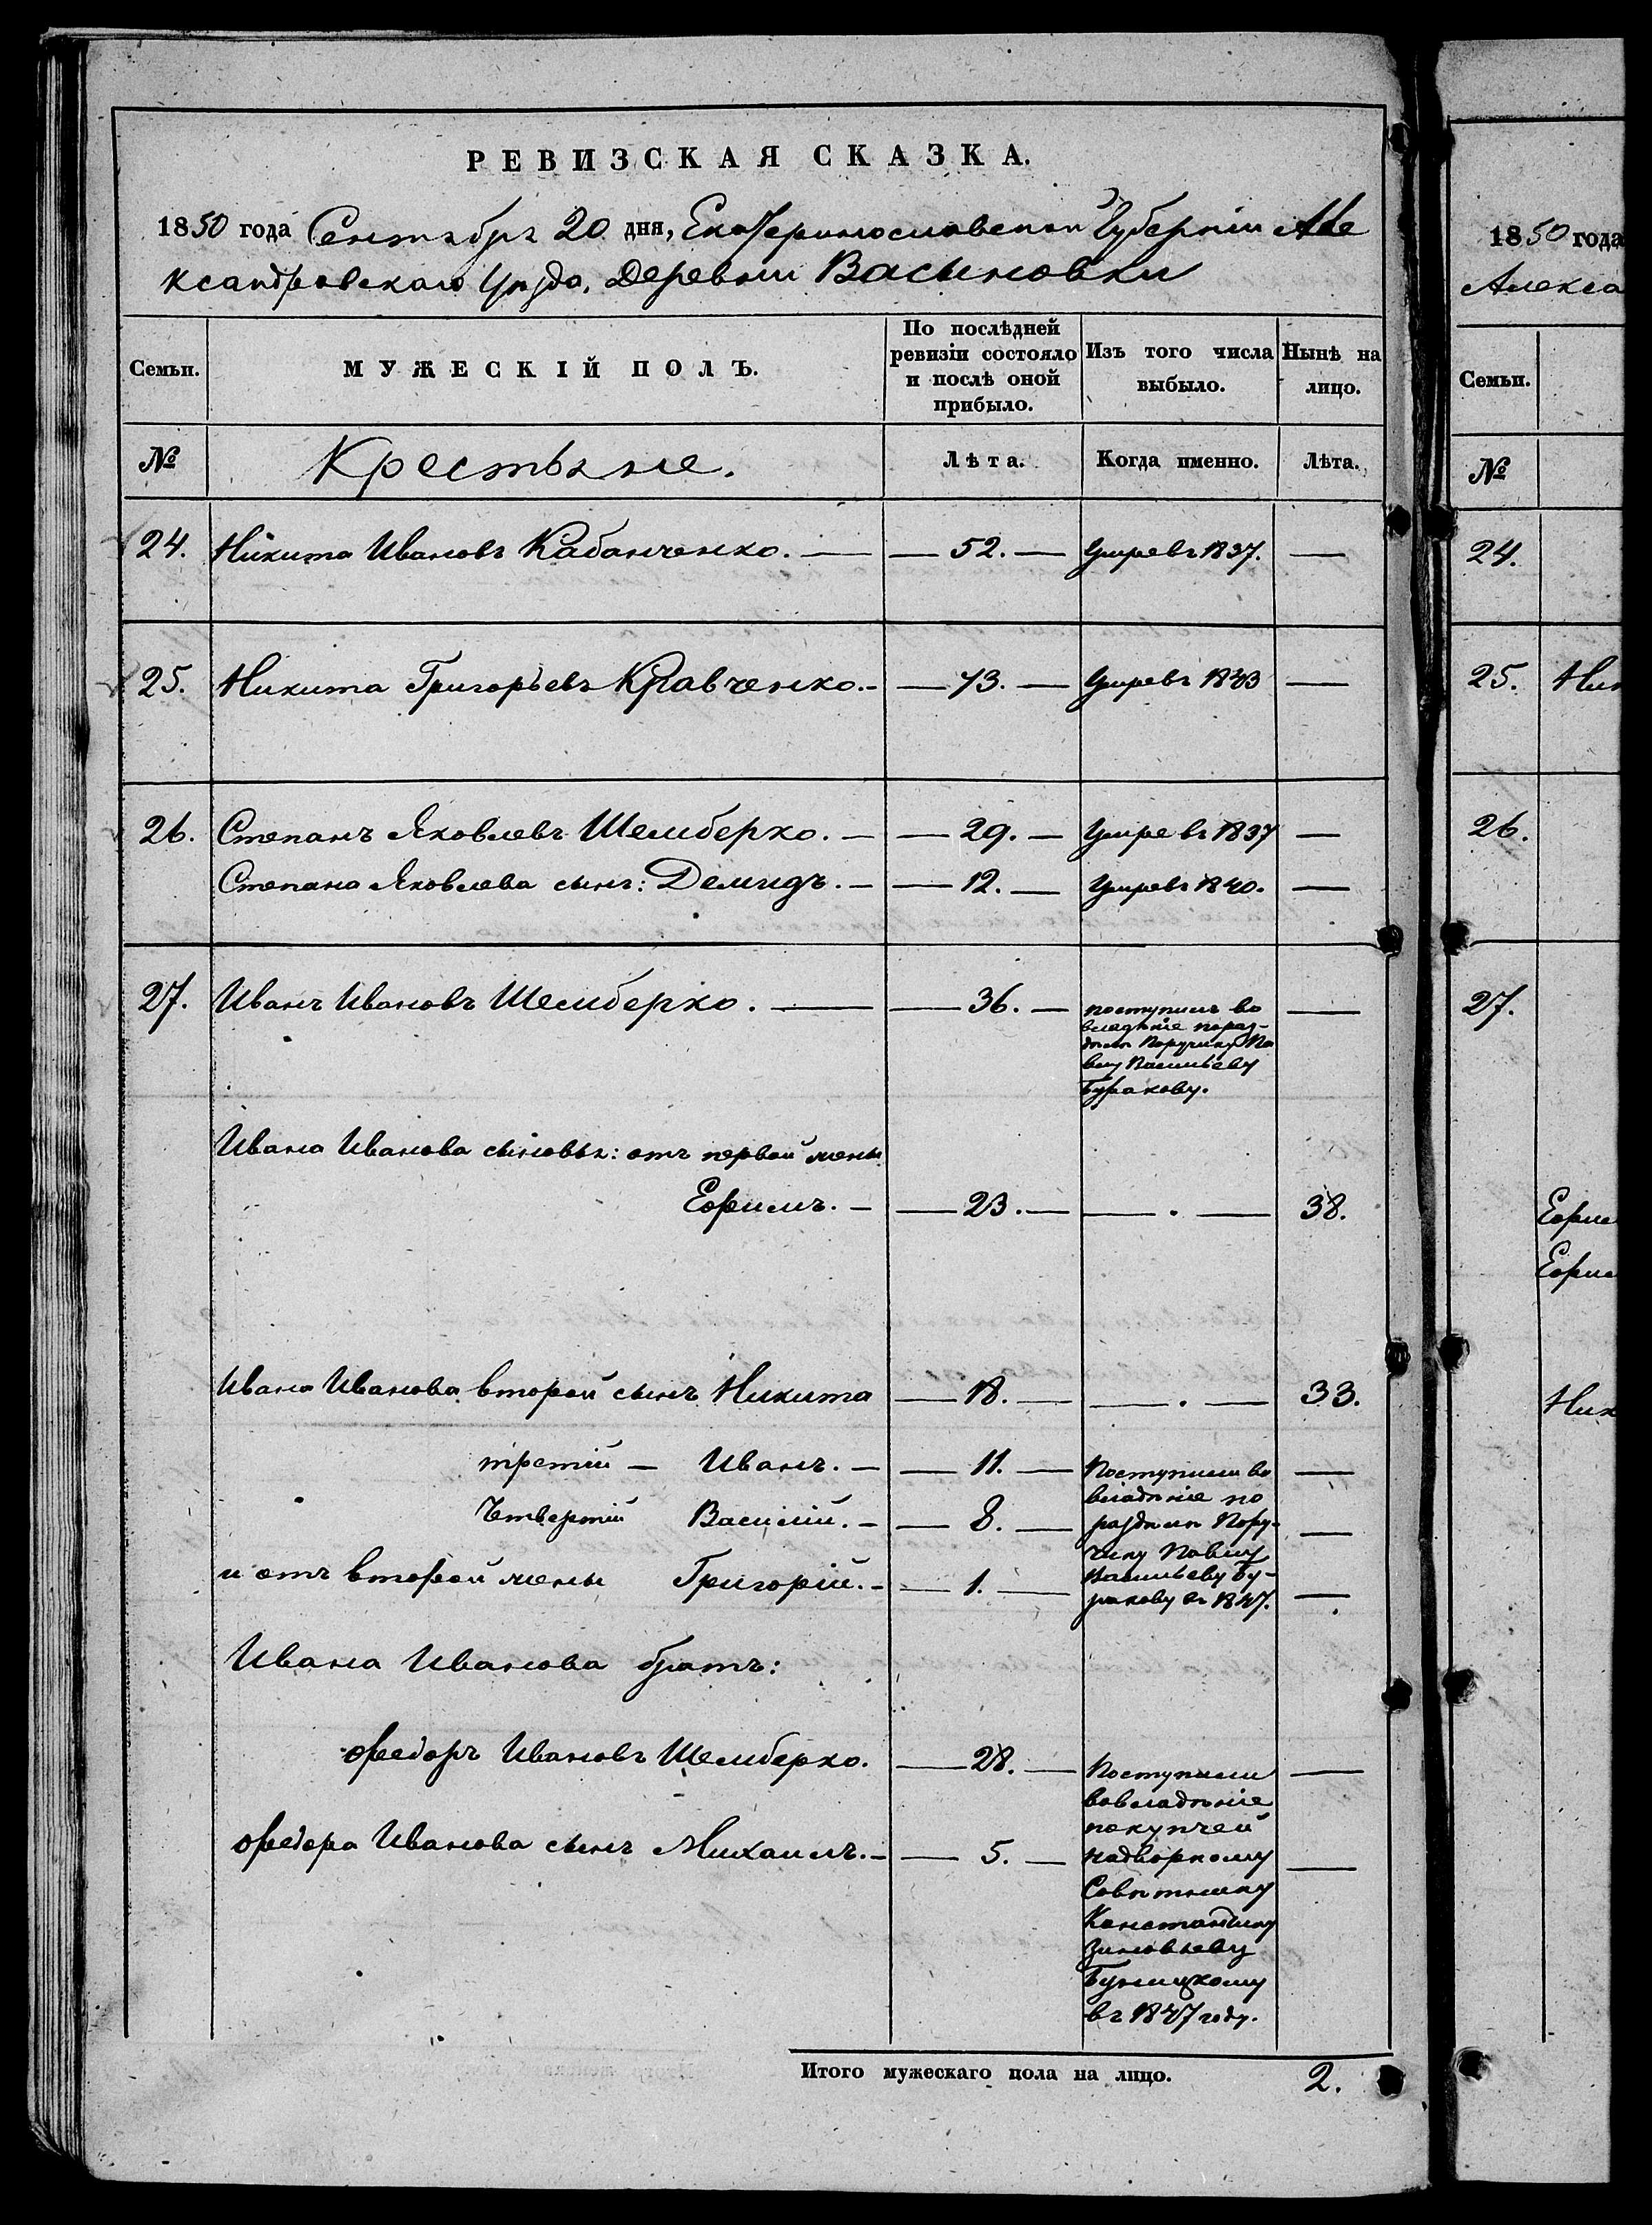 РЕВИЗСКАЯ СКАЗКА.
1850 года Сентября 20 дня, Екатеринославской Губерніи Але
ксандровскаго Уѣзда, Деревни Васыновки
Семьи.
МУЖЕСКІЙ ПОЛЪ.
По послѣдней ревизіи состояло и послѣ оной прибыло.
Изъ того числа выбыло.
Нынѣ на лицо.
№
Крестьяне.
Лѣта.
Когда именно.
Лѣта.
24. Никита Ивановъ Кабанченко. — — 52. — Умре въ 1837. —
25. Никита Григорьевъ Кравченко. — — 73. — Умре въ 1843 —
26. Степанъ Яковлевъ Шемберко. — — 29. — Умре въ 1837 —
Степана Яковлева сынъ: Демидъ. — — 12. — Умре въ 1840. —
27. Иванъ Ивановъ Шемберко. — — 36. — поступилъ во —
владѣніе пораз-
дѣлу Поручику Па
влу Васильеву
Буракову.
Ивана Иванова сыновья: отъ первой жены
Ефимъ. — — 23. — — . — 38.
Ивана Иванова второй сынъ Никита — 18. — — . — 33.
третій — Иванъ. — — 11. — Поступили во —
владѣніе по
Четвертій Василій. — — 8. — раздѣлу Пору- —
чику Павлу
и отъ второй жены Григорій. — — 1. — Васильеву Бу-
ракову въ 1847. —
Ивана Иванова братъ:
Федоръ Ивановъ Шемберко. — 28. — Поступили —
вовладѣніе
покупчей
Федора Иванова сынъ Михаилъ. — — 5. — надворному —
Совѣтнику
Константину
Зиновьеву
Буницкому
въ 1847 году.
Итого мужескаго пола на лицо. 2.
1850 года
Алекса
Семьи.
№
24.
25. Ник
26.
27.
Ефим
Ефим
Ник